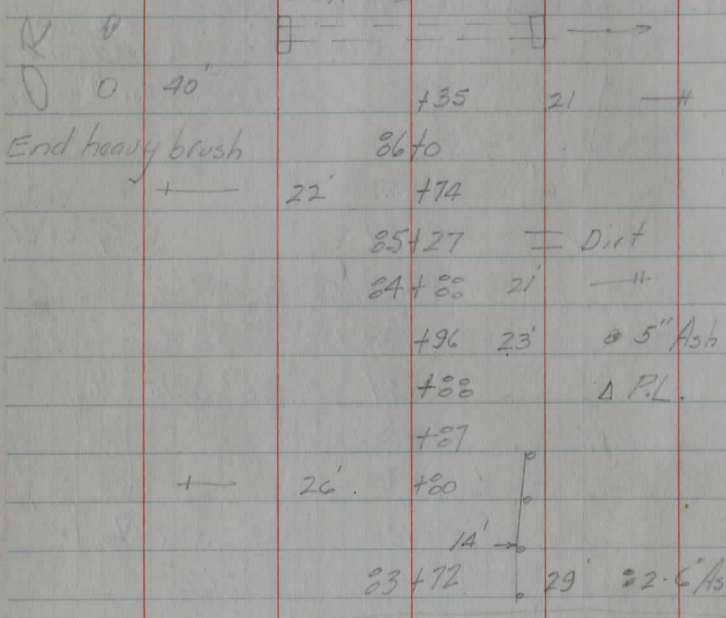 40' +35 21
End heavy brush 86+0
22' +74
85+27 Dirt
84+88 21'
+96 23' 5" Ash
+88 Δ P.L.
+87
26' +80
14'
83+72 29' 2-6" As